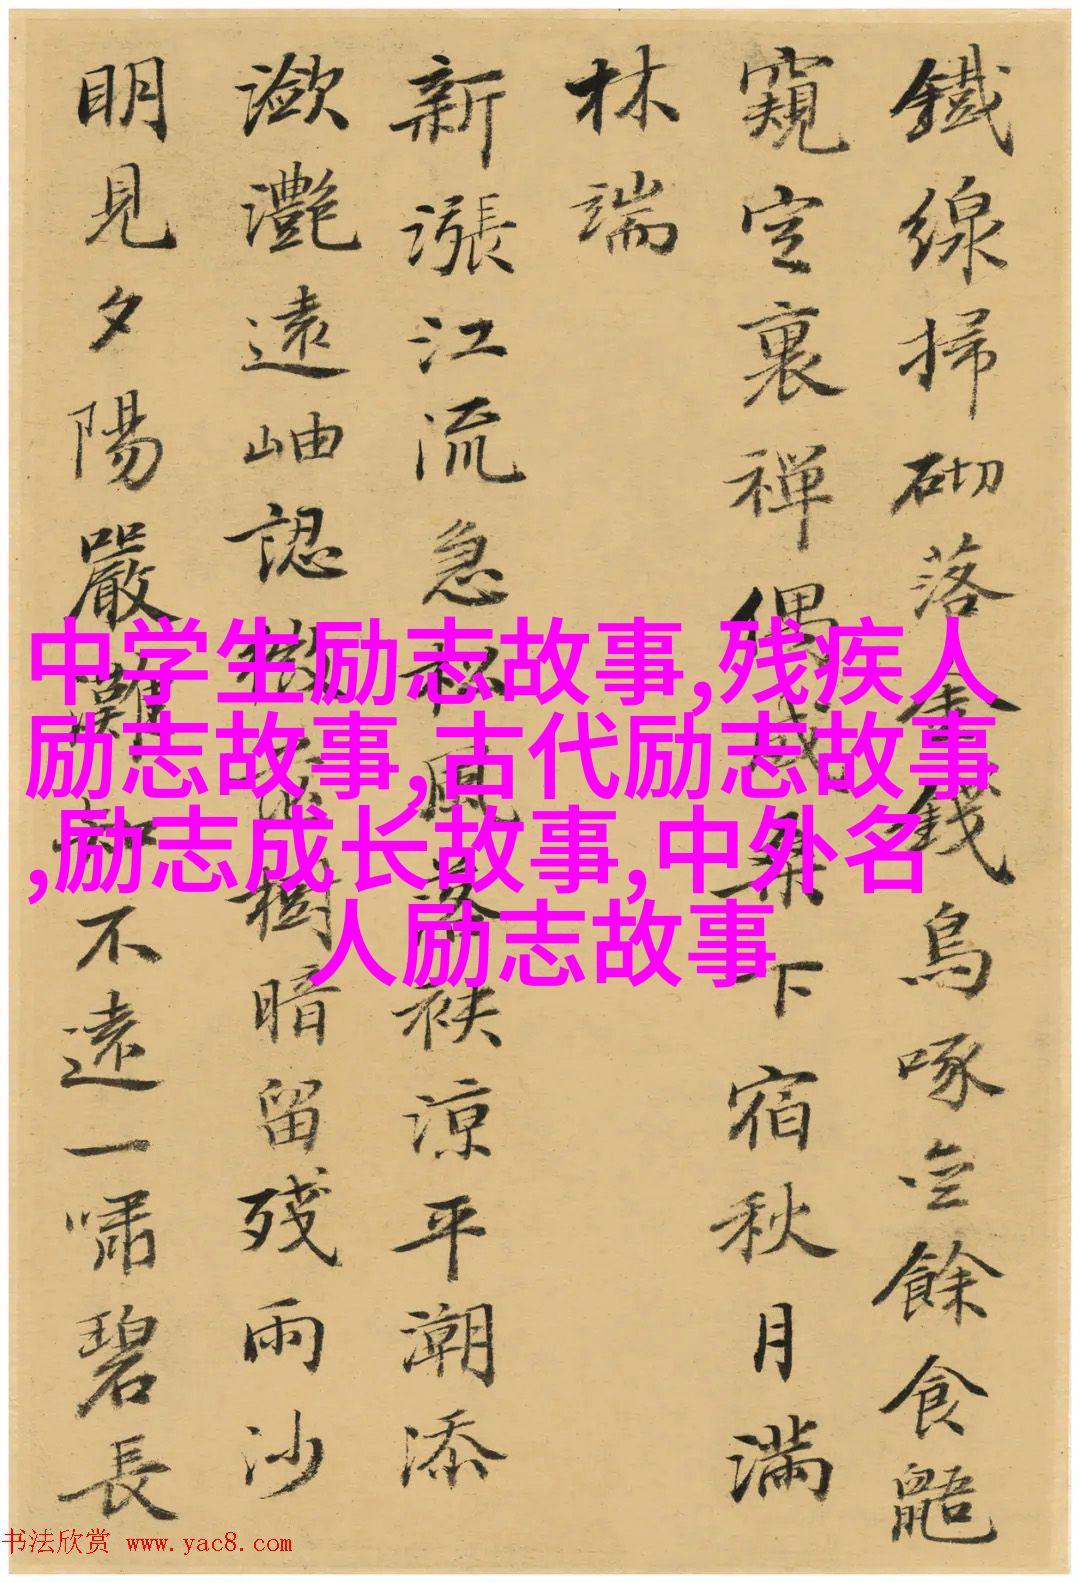 鐵線掃砌落金錢鳥啄虫餘食鼯
窺空裏禪偶戚桑下宿秋月滿
林端
新漲江流急秋風落袂涼平潮添
瀲灩遠岫認微茫樹暗留殘雨沙
明見夕陽嚴灘知不遠一嘯碧長
中学生励志故事,残疾人
励志故事,古代励志故事
,励志成长故事,中外名
人励志故事
书法欣赏 www.yac8.com